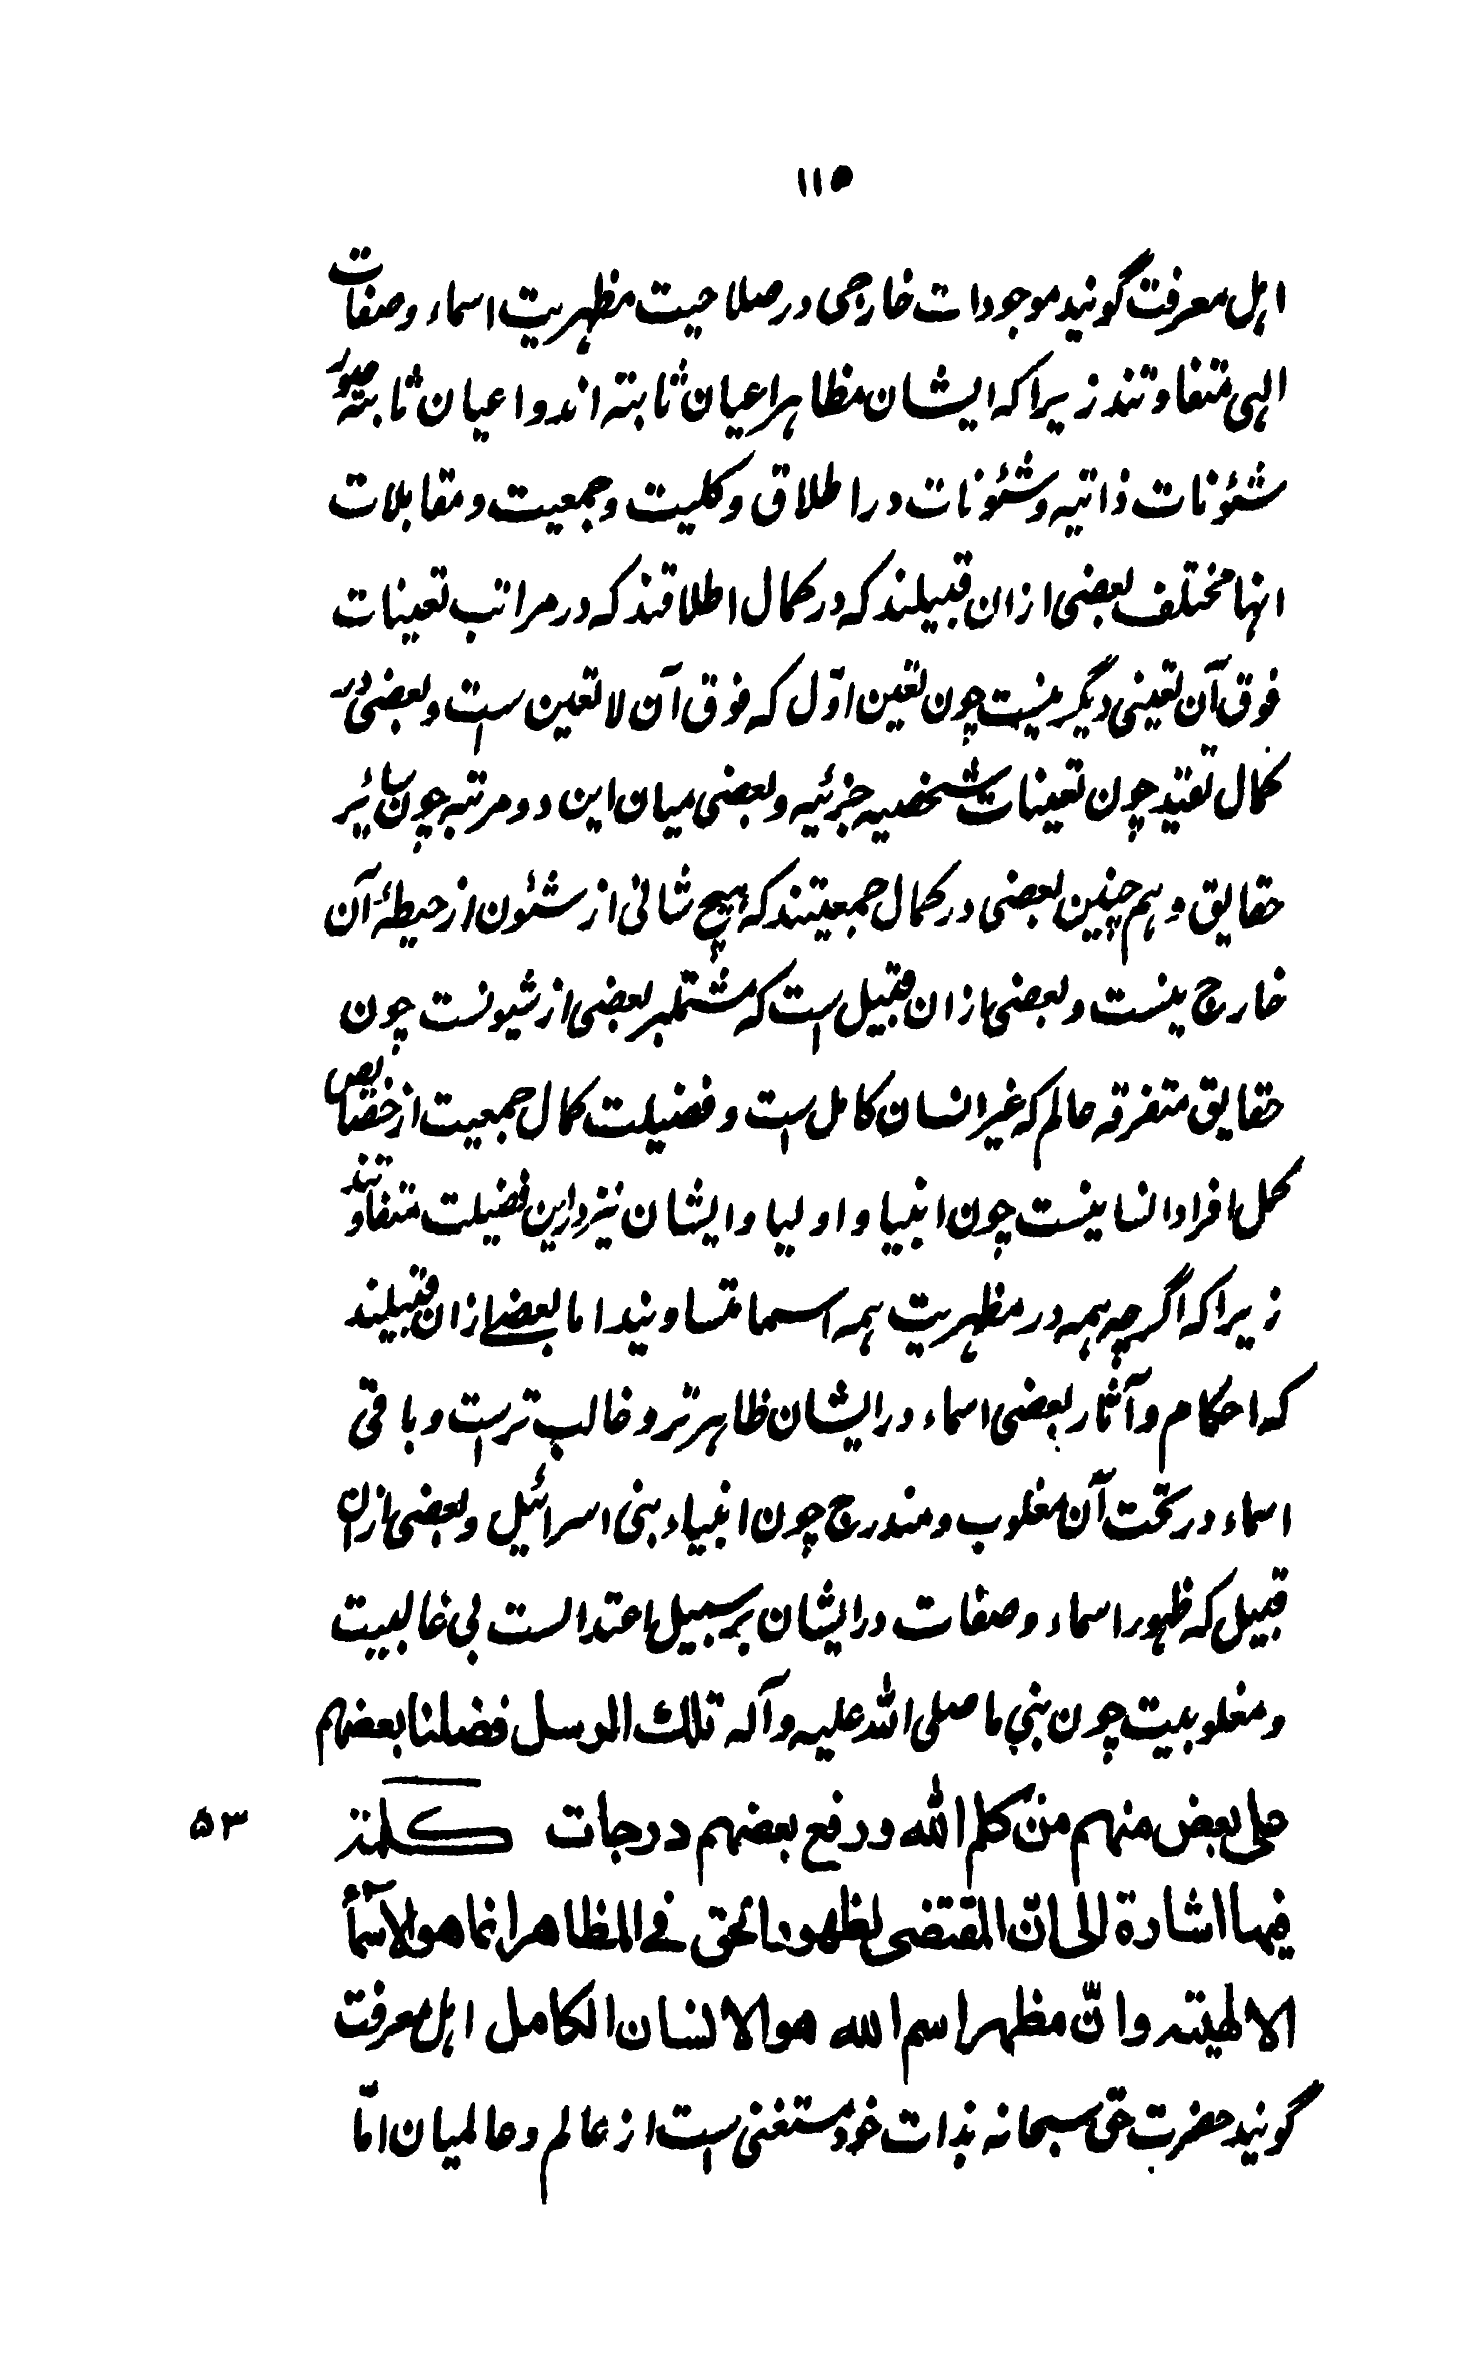 ۱۱۵
اهل معرفت گویند موجودات خارجی در صلاحیت مظهریت اسماء و صفات
الهی متفاوتند زیرا که ایشان مظاهر اعیان ثابته اند و اعیان ثابته صور
شئونات ذاتیه و شئونات در اطلاق و کلیت و جمعیت و مقابلات
انها مختلف بعضی ازان قبیلند که در کمال اطلاقند که در مراتب تعینات
فوق آن تعینی دیگر نیست چون تعین اوّل که فوق آن لا تعین ست و بعضی در
کمال تقیّد چون تعینات شخصیه جزئیه و بعضی میان این دو مرتبه چون سائر
حقایق و هم چنین بعضی در کمال جمعیتند که هیچ شانی از شئون از حیطهٔ آن
خارج نیست و بعضی ازان قبیل است که مشتملبر بعضی از شیونست چون
حقایق متفرقه عالم که غیر انسان کامل است و فضیلت کمال جمعیت از خصایص
کمل افراد انسانیست چون انبیا و اولیا و ایشان نیز در این فضیلت متفاوتند
زیرا که اگر چه همه در مظهریت همه اسما متساویند اما بعضی ازان قبیلند
که احکام و آثار بعضی اسماء در ایشان ظاهرتر و غالب تر است و باقی
اسماء در تحت آن مغلوب و مندرج چون انبیاء بنی اسرائیل و بعضی ازان
قبیل که ظهور اسماء و صفات در ایشان بر سبیل اعتدالست بی غالبیت
و مغلوبیت چون نبی ما صلی الله علیه و آله تلك الرسل فضلنا بعضهم
علی بعض منهم من کلم الله و رفع بعضهم درجات کلمة ۵۳
فیها اشارة الی انّ المقتضی لظهور الحق فی المظاهر انما هو الاسمآء
الالهیته و انّ مظهر اسم الله هو الانسان الکامل اهل معرفت
گویند حضرت حق سبحانه بذات خود مستغنی است از عالم و عالمیان امّا